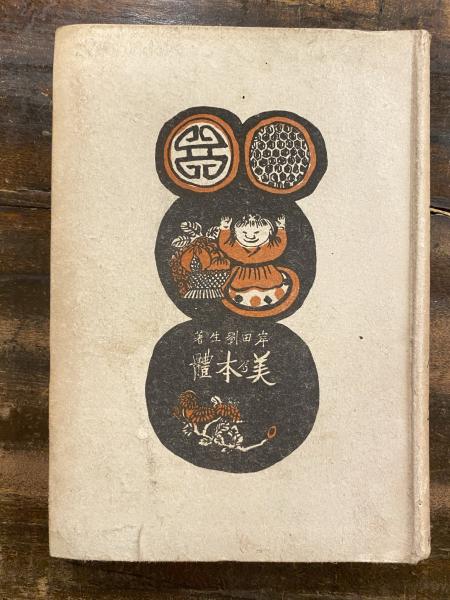 岸田劉生著
美乃本體